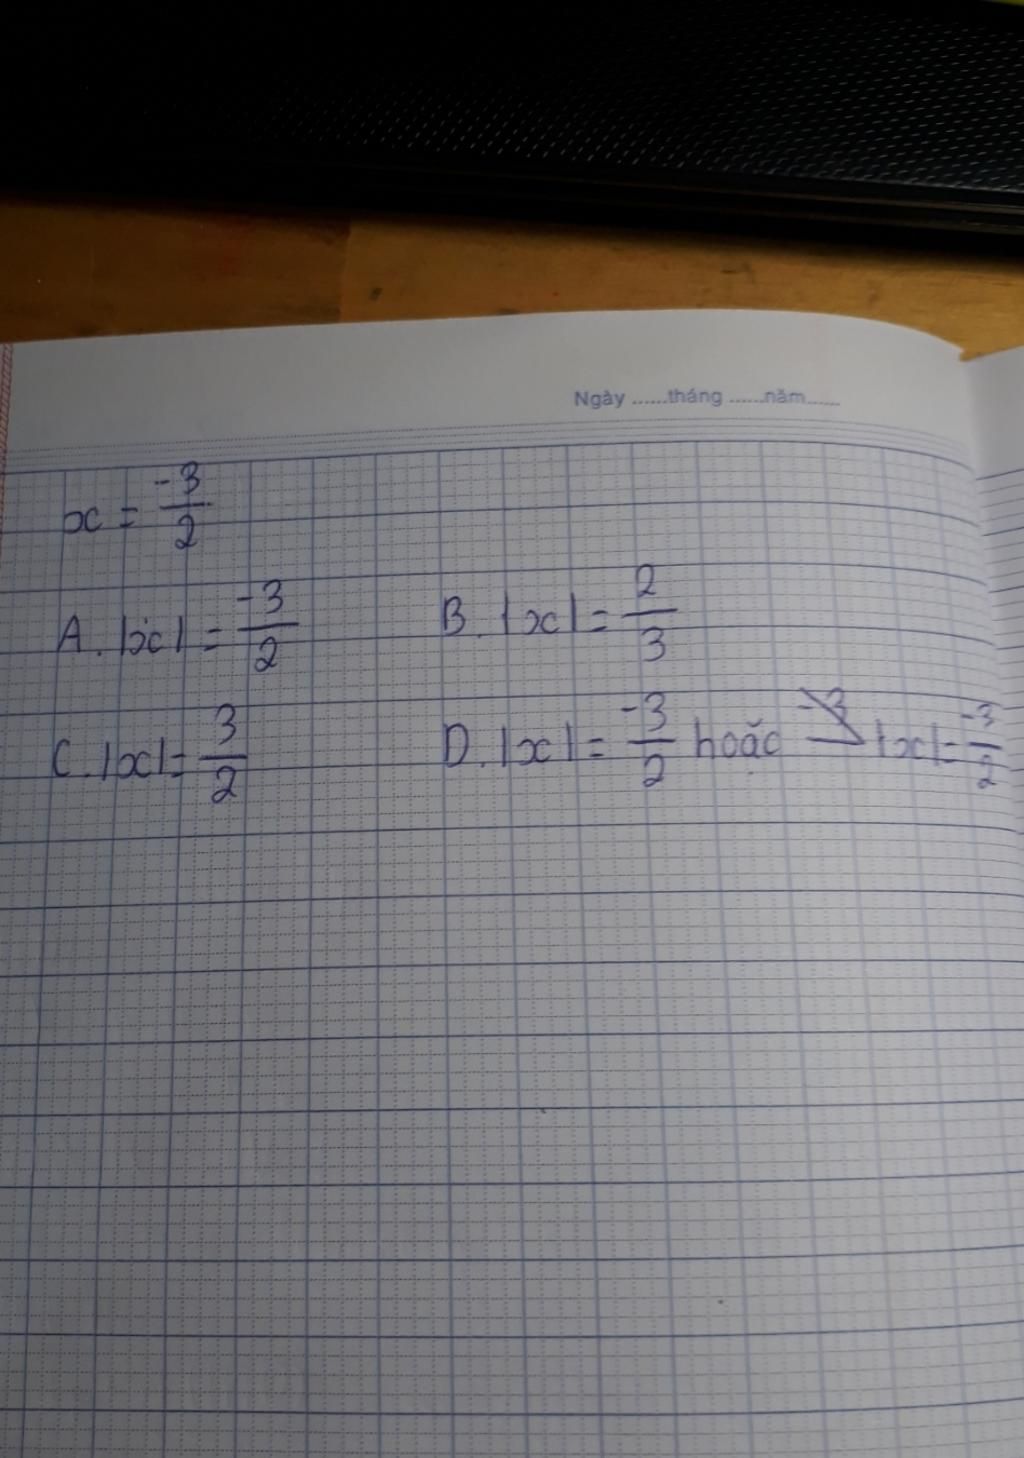 Ngày ......tháng ......năm......
x = -3/2
A. |x| = -3/2 B. |x| = 2/3
C. |x| = 3/2 D. |x| = -3/2 hoặc |x| = -3/2